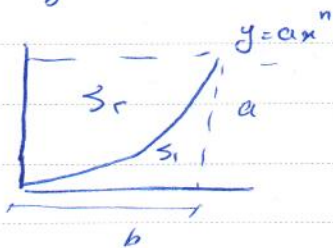 y=ax^n
S₂
a
S₁
b